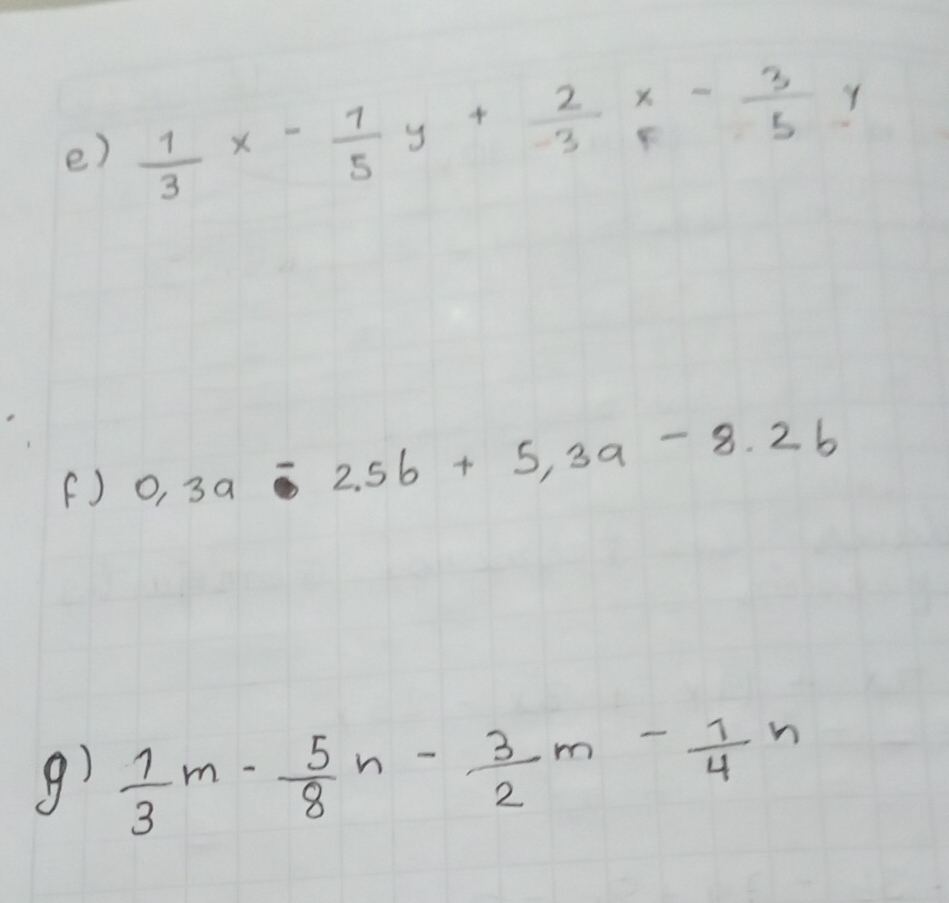 e) 1/3 x - 1/5 y + 2/3 x - 3/5 y
f) 0,3a - 2.5b + 5,3a - 8.2b
g) 1/3 m - 5/8 n - 3/2 m - 1/4 n